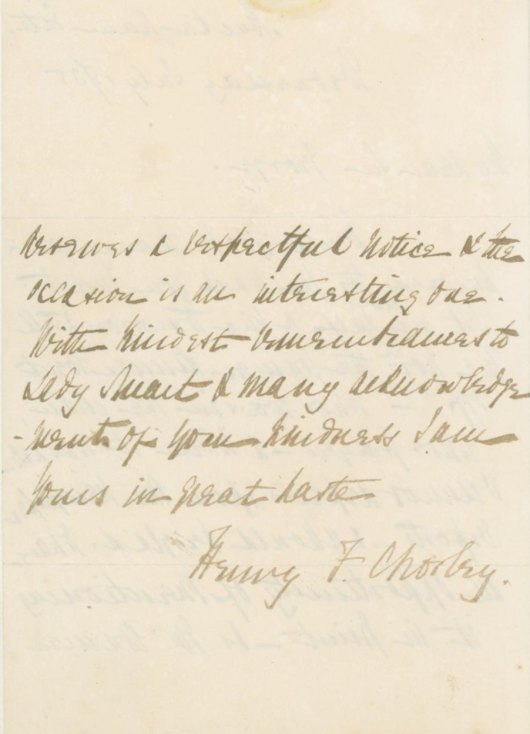 deserves a respectful notice & the
occasion is an interesting one.
With kindest remembrances to
Lady Smart & many acknowledge
-ments of your kindness I am
Yours in great haste
Henry F. Chorley.